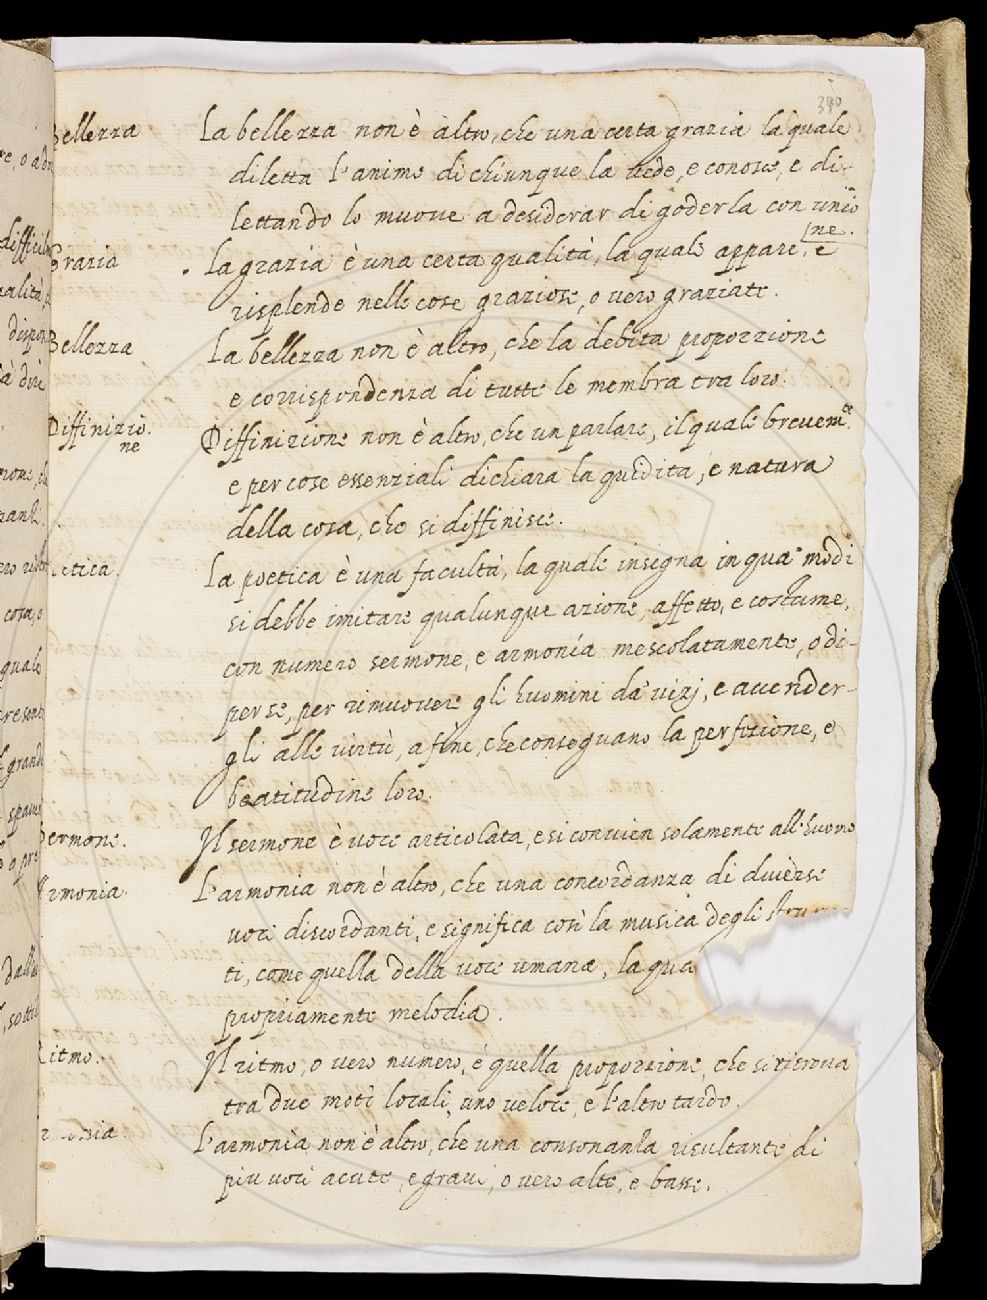 340
Bellezza La bellezza non è altro, che una certa grazia la quale
diletta l'animo di chiunque la uede, e conosce, e di-
lettando lo muoue a desiderar di goderla con unio
ne.
Grazia La grazia è una certa qualità, la quale appare, e
risplende nelle cose graziose, o uero graziate.
Bellezza La bellezza non è altro, che la debita proporzione
e corrispondenza di tutte le membra tra loro.
Diffinizio- Diffinizione non è altro, che un parlare, il quale breuemte
ne e per cose essenziali dichiara la quidità, e natura
della cosa, che si diffinisce.
etica. La poetica è una facultà, la quale insegna in qua' modi
si debbe imitare qualunque azione, affetto, e costume,
con numero sermone, e armonia mescolatamente, o di-
per se, per rimuouere gli huomini da' vizj, e accender-
gli alle uirtù, a fine, che conseguano la perfizione, e
beatitudine loro.
Sermone. Il sermone è uoce articolata, e si conuien solamente all'huomo
Armonia L'armonia non è altro, che una concordanza di diuerse
uoci discordanti, e significa così la musica degli
ti, come quella della uoce umana, la qua
propriamente melodia.
Ritmo. Il ritmo, o uero numero, è quella proporzione, che si ritroua
tra due moti locali, uno veloce, e l'altro tardo.
L'armonia non è altro, che una consonanza risultante di
piu uoci acute, e graui, o uero alte, e basse.